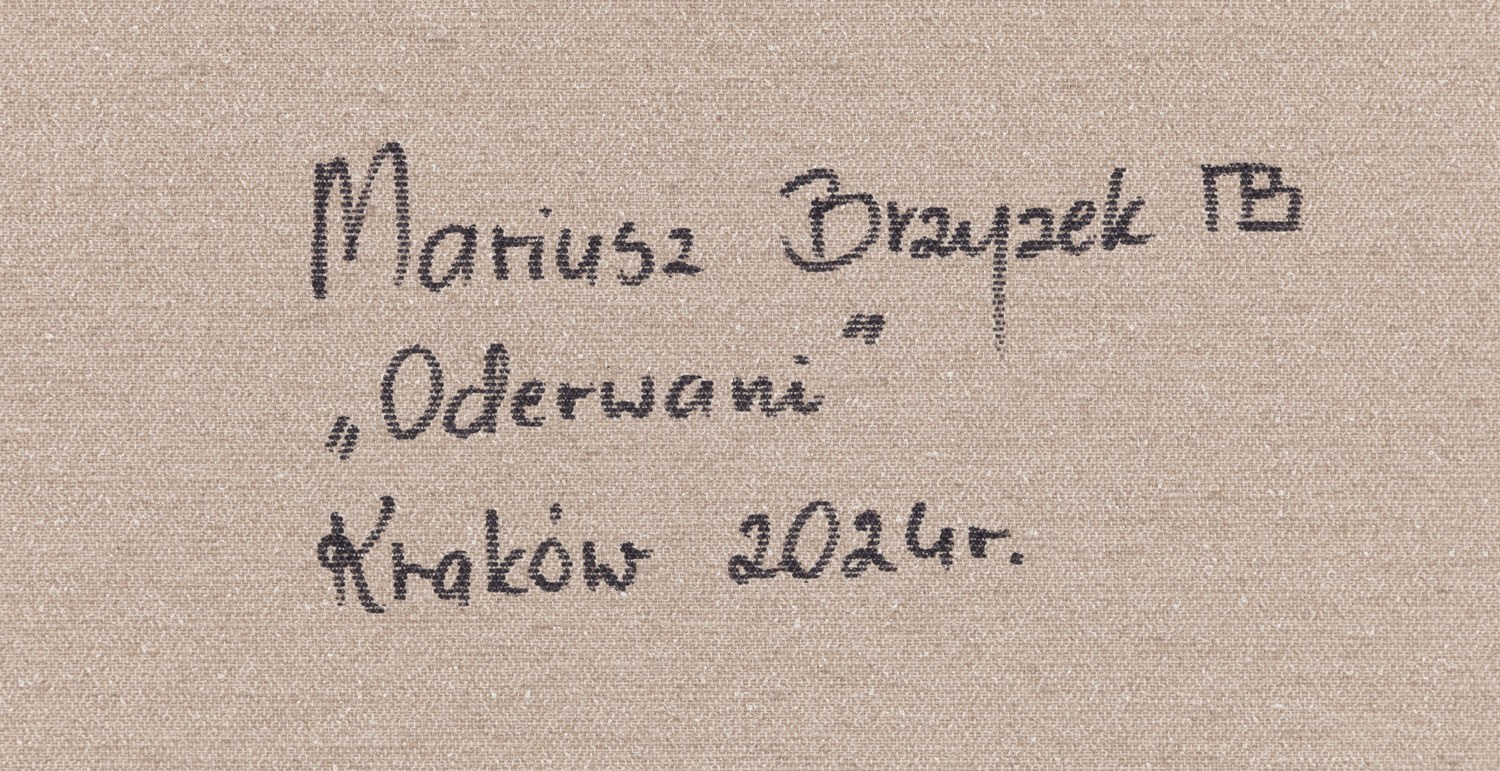 Mariusz Brzyzek
„Oderwani”
Kraków 2024r.